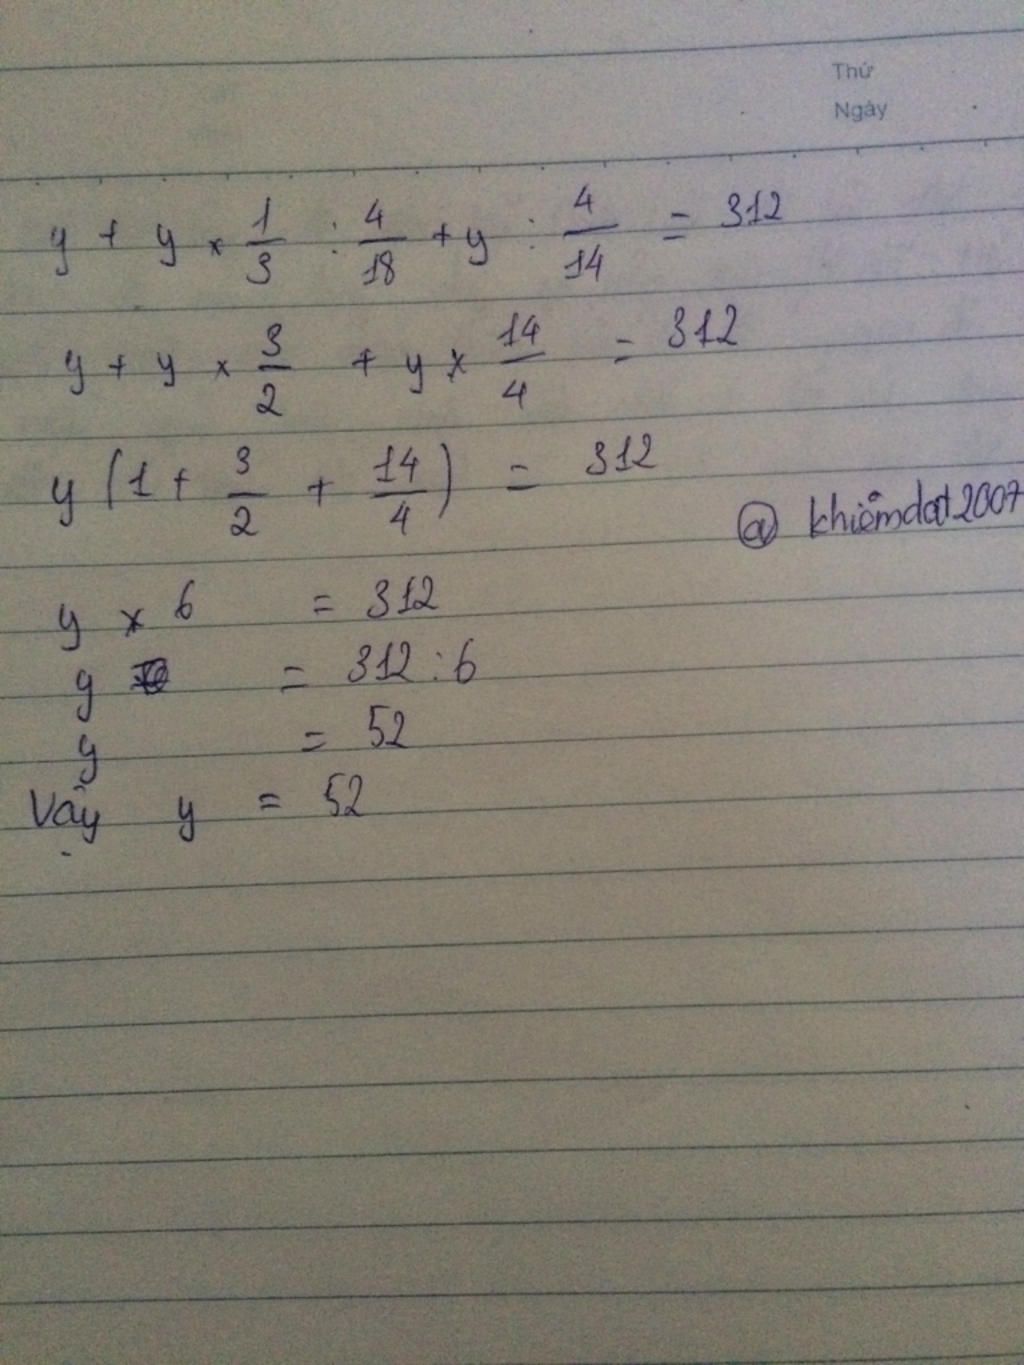 Thứ
Ngày
y + y × 1/3 : 4/18 + y : 4/14 = 312
y + y × 3/2 + y × 14/4 = 312
y (1 + 3/2 + 14/4) = 312
@ khiêmdat2007
y × 6 = 312
y = 312 : 6
y = 52
Vậy y = 52